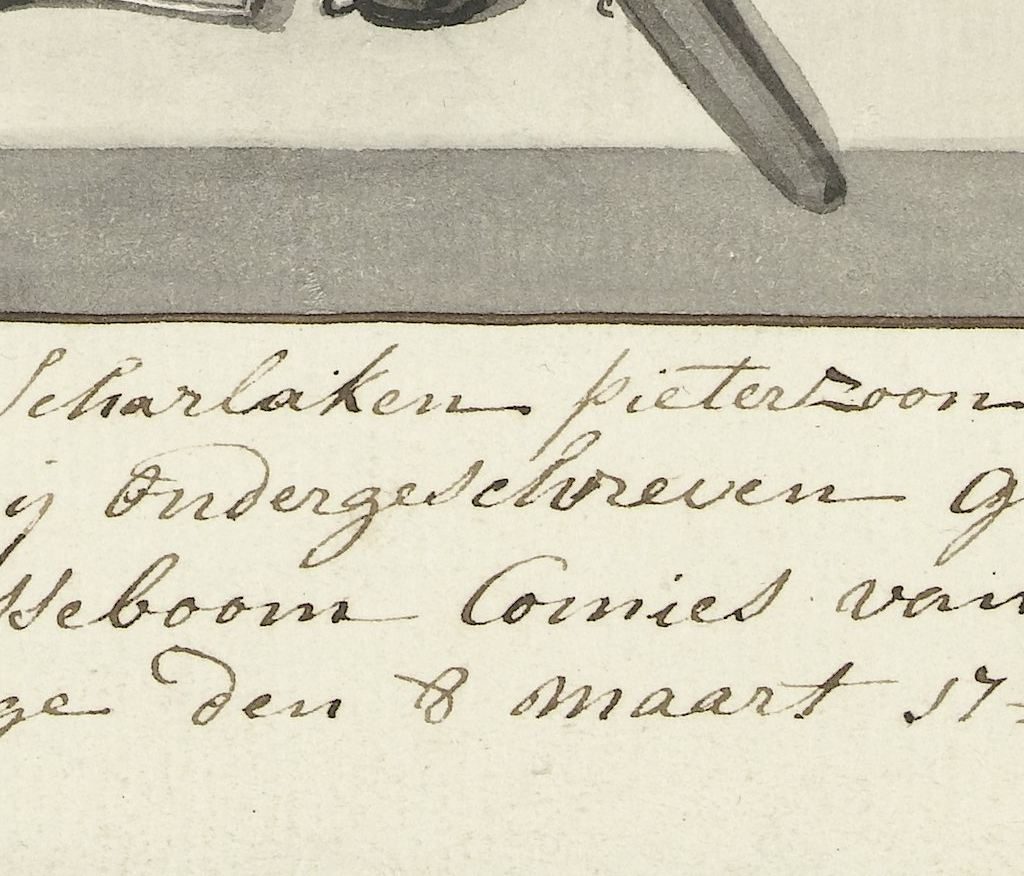 Scharlaken pieterzoon
ij ondergeschreven G
sseboom Comies van
ge den 8 maart 17